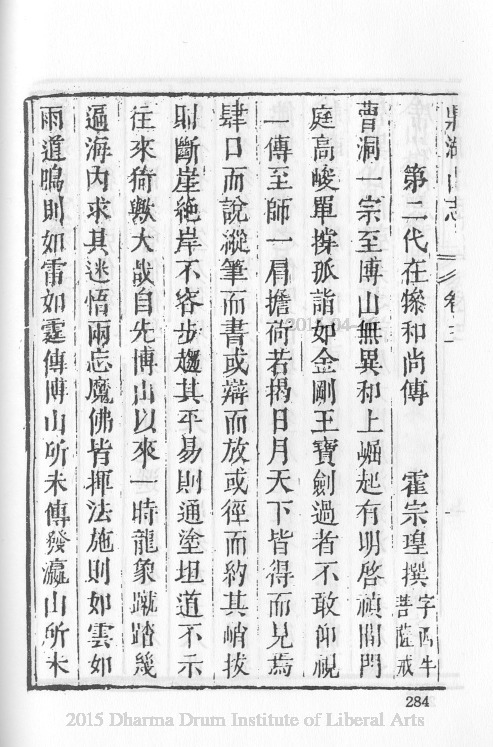 鼎湖山志 卷三
第二代在犙和尚傳 霍宗瑝撰 字西牛 菩薩戒
曹洞一宗至博山無異和上崛起有明啓禎間門
庭高峻單撐孤詣如金剛王寶劍過者不敢仰視
一傳至師一肩擔荷若揭日月天下皆得而見焉
肆口而說縱筆而書或辯而放或徑而約其峭拔
則斷崖絶岸不容步趨其平易則通塗坦道不示
往來猗歟大哉自先博山以來一時龍象蹴踏幾
遍海內求其迷悟兩忘魔佛皆揮法施則如雲如
雨道鳴則如雷如霆傳博山所未傳發瀛山所未
284
2015 Dharma Drum Institute of Liberal Arts